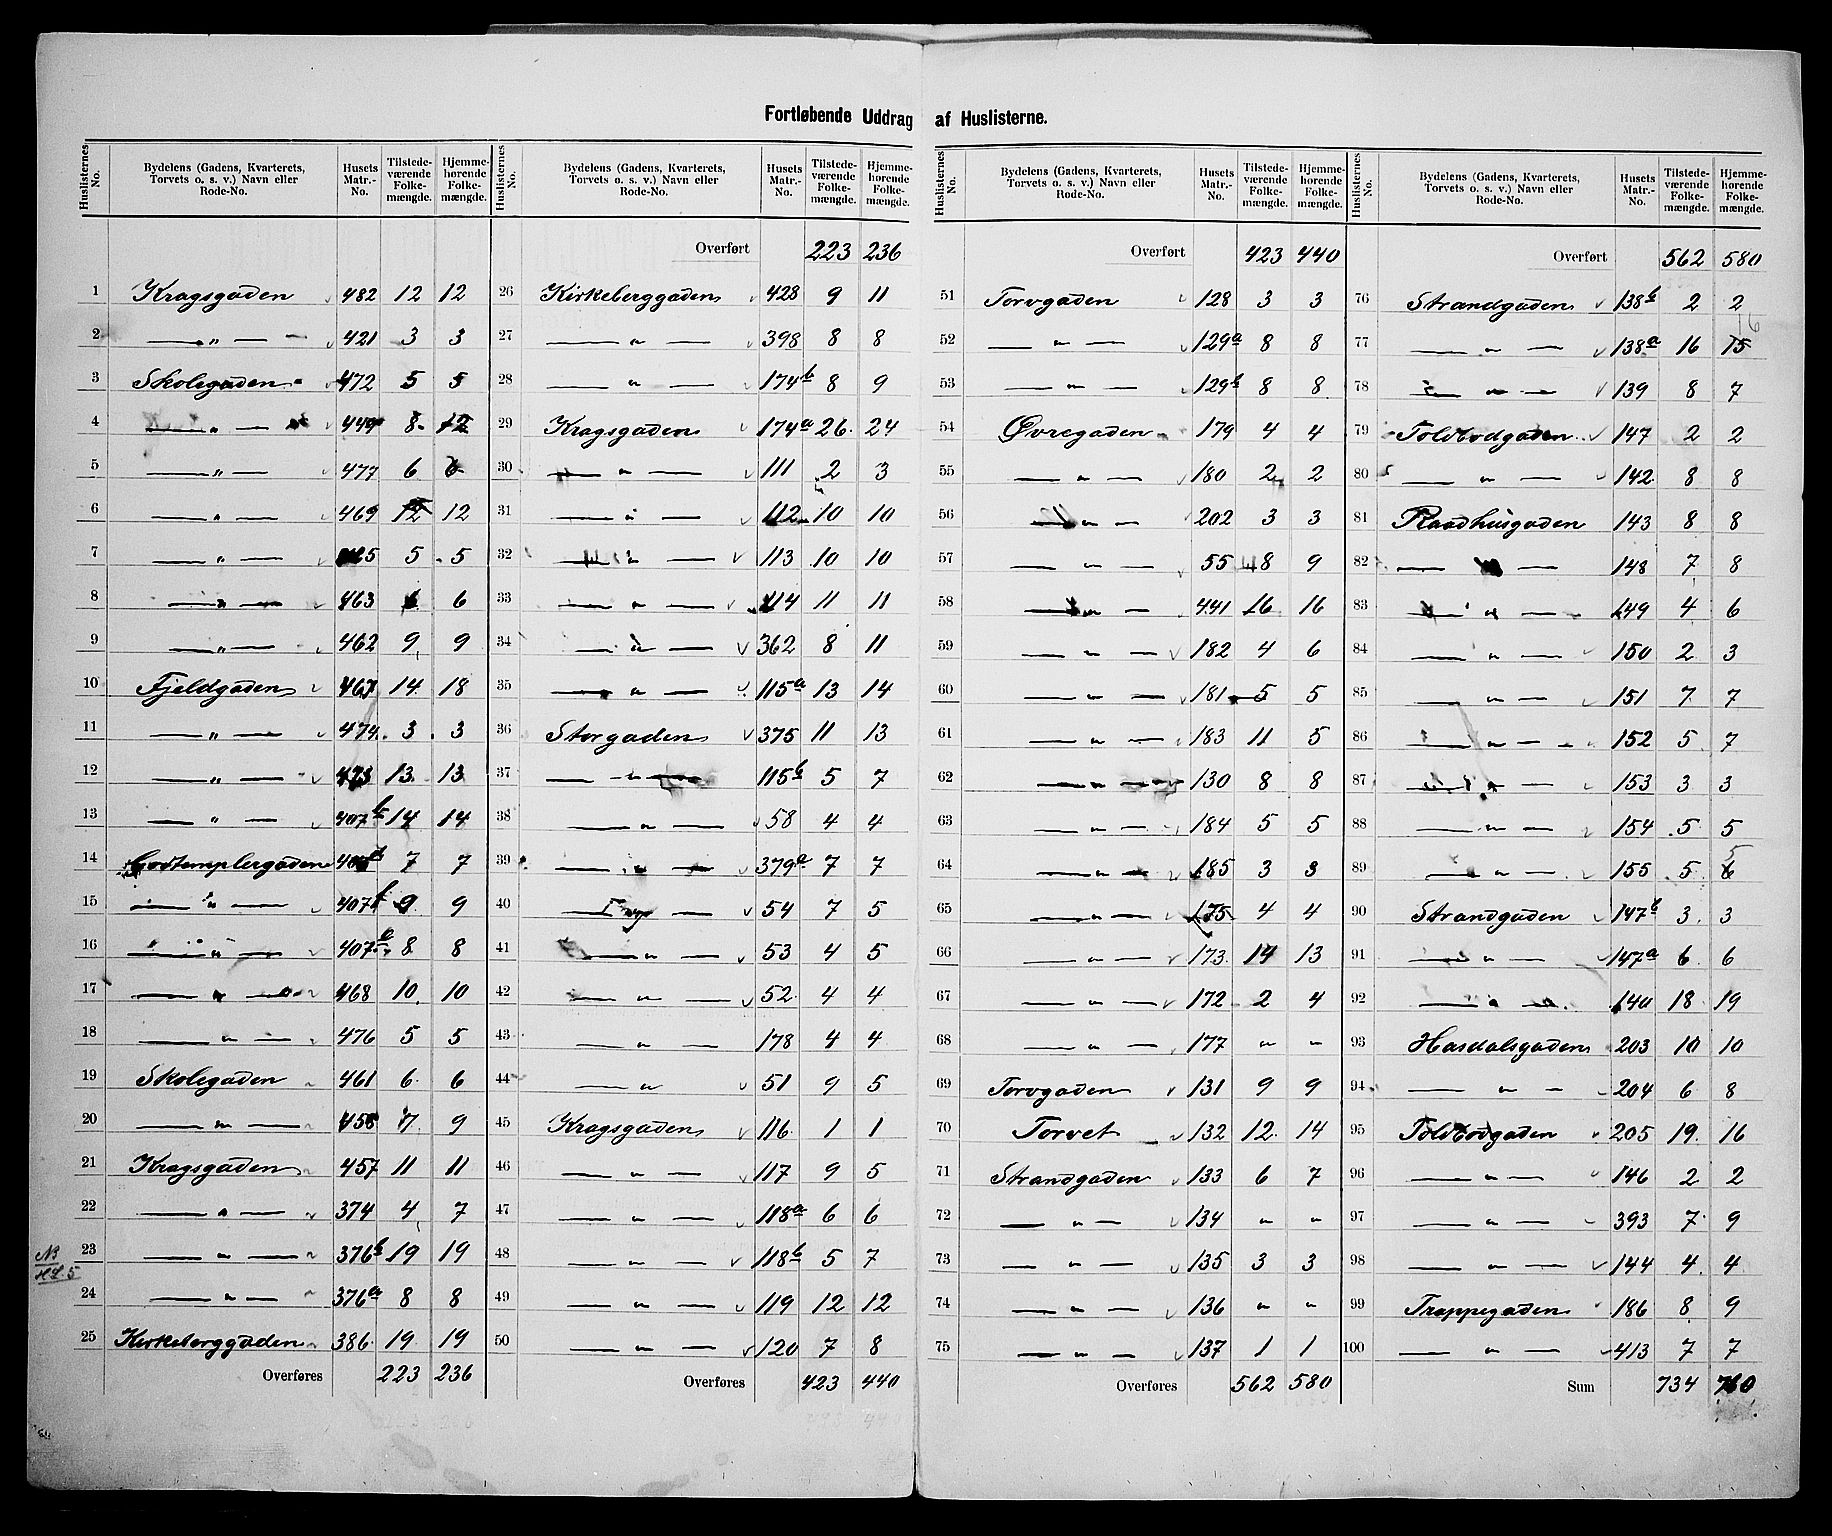 Fortløbende Uddrag af Huslisterne.
Huslisternes No. | Bydelens (Gadens, Kvarterets, Torvets o. s. v.) Navn eller Rode-No. | Husets Matr.-No. | Tilstedeværende Folkemængde. | Hjemmehørende Folkemængde.
1 Kragsgaden 482 12 12
2 — „ — 421 3 3
3 Skolegaden 472 5 5
4 — „ — 449 8 12
5 — „ — 477 6 6
6 — „ — 469 12 12
7 — „ — 5 5
8 — „ — 463 6 6
9 — „ — 462 9 9
10 Fjeldgaden 467 14 18
11 — „ — 474 3 3
12 — „ — 473 13 13
13 — „ — 407b 14 14
14 Godtemplergaden 7 7
15 — „ — 407 9 9
16 — „ — 407 8 8
17 — „ — 468 10 10
18 — „ — 476 5 5
19 Skolegaden 461 6 6
20 — „ — 458 7 9
21 Kragsgaden 457 11 11
22 — „ — 374 4 7
NB HL. 5
23 — „ — 376b 19 19
24 — „ — 376a 8 8
25 Kirkeberggaden 386 19 19
Overføres 223 236
Huslisternes No. | Bydelens (Gadens, Kvarterets, Torvets o. s. v.) Navn eller Rode-No. | Husets Matr.-No. | Tilstedeværende Folkemængde. | Hjemmehørende Folkemængde.
Overført 223 236
26 Kirkeberggaden 428 9 11
27 — „ — 398 8 8
28 — „ — 174b 8 9
29 Kragsgaden 174a 26 24
30 — „ — 111 2 3
31 — „ — 112 10 10
32 — „ — 113 10 10
33 — „ — 114 11 11
34 — „ — 362 8 11
35 — „ — 115a 13 14
36 Storgaden 375 11 13
37 — „ — 115b 5 7
38 — „ — 58 4 4
39 — „ — 379a 7 7
40 — „ — 54 7 5
41 — „ — 53 4 5
42 — „ — 52 4 4
43 — „ — 178 4 4
44 — „ 51 9 5
45 Kragsgaden 116 1 1
46 — „ — 117 9 5
47 — „ — 118a 6 6
48 — „ — 118b 5 7
49 — „ — 119 12 12
50 — „ — 120 7 8
Overføres 423 440
Huslisternes No. | Bydelens (Gadens, Kvarterets, Torvets o. s. v.) Navn eller Rode-No. | Husets Matr.-No. | Tilstedeværende Folkemængde. | Hjemmehørende Folkemængde.
Overført 423 440
51 Torvgaden 128 3 3
52 — „ — 129a 8 8
53 — „ — 129b 8 8
54 Øvregaden 179 4 4
55 — „ — 180 2 2
56 — „ — 202 3 3
57 — „ — 55 8 9
58 — „ — 441 16 16
59 — „ — 182 4 6
60 — „ — 181 5 5
61 — „ — 183 11 5
62 — „ — 130 8 8
63 — „ — 184 5 5
64 — „ — 185 3 3
65 — „ — 175 4 4
66 — „ — 173 14 13
67 — „ — 172 2 4
68 — „ — 177 „ „
69 Torvgaden 131 9 9
70 Torvet 132 12 14
71 Strandgaden 133 6 7
72 — „ — 134 „ „
73 — „ — 135 3 3
74 — „ — 136 „ „
75 — „ — 137 1 1
Overføres 562 580
Huslisternes No. | Bydelens (Gadens, Kvarterets, Torvets o. s. v.) Navn eller Rode-No. | Husets Matr.-No. | Tilstedeværende Folkemængde. | Hjemmehørende Folkemængde.
Overført 562 580
76 Strandgaden 138b 2 2
77 — „ — 138a 16 15 16
78 — „ — 139 8 7
79 Toldbodgaden 147 2 2
80 — „ — 142 8 8
81 Raadhusgaden 143 8 8
82 — „ — 148 7 8
83 — „ — 149 4 6
84 — „ — 150 2 3
85 — „ — 151 7 7
86 — „ — 152 5 7
87 — „ — 153 3 3
88 — „ — 154 5 5
89 — „ — 155 5 6 5
90 Strandgaden 147b 3 3
91 — „ — 147a 6 6
92 — „ — 140 18 19
93 Hasdalsgaden 203 10 10
94 — „ — 204 6 8
95 Toldbodgaden 205 19 16
96 — „ — 146 2 2
97 — „ — 393 7 9
98 — „ — 144 4 4
99 Trappegaden 186 8 9
100 — „ — 413 7 7
Sum 734 760